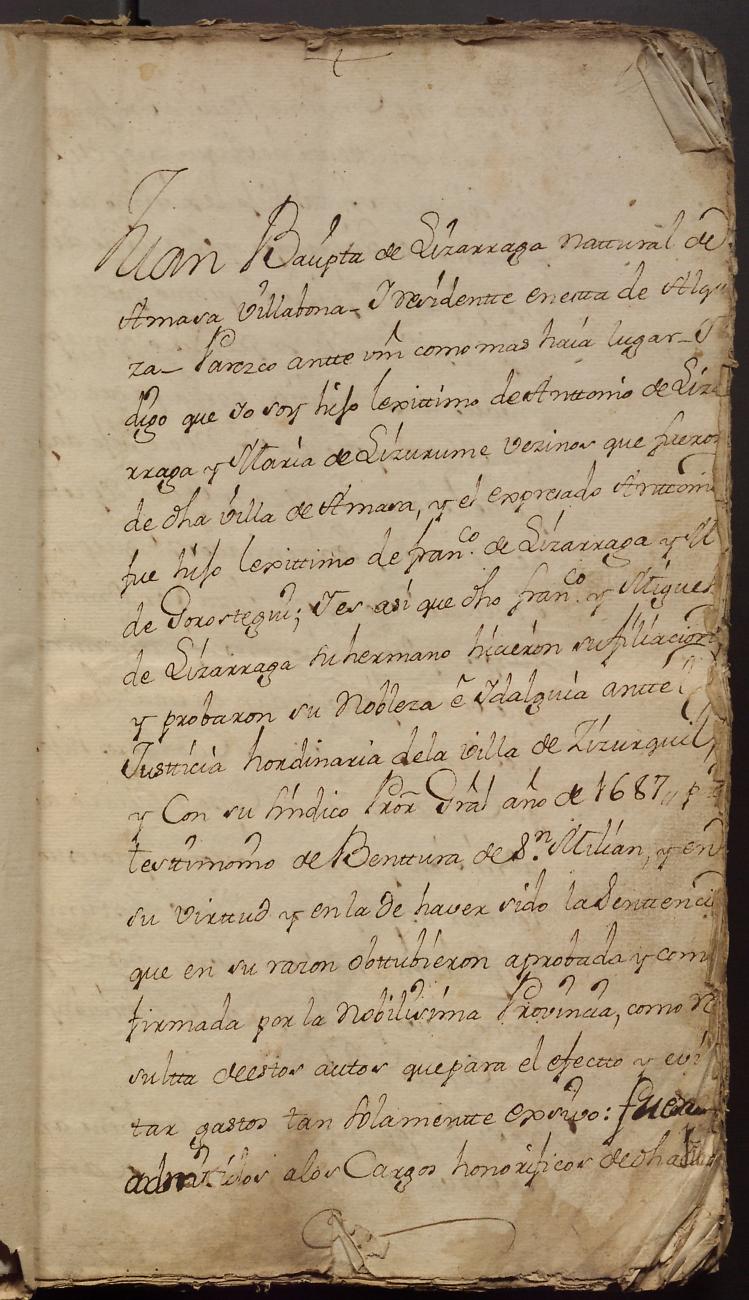 Juan Baupta de Lizarraga nattural de
Amasa Villabona- Y residentte enestta de Alqu
za- Parezco antte vm como mas haia lugar- Y
digo que Yo soy hijo lexittimo de Anttonio de Liza
rraga y Maria de Lizurume vezinos que fueron
de dha villa de Amasa, y el expresado Anttoni
fue hijo lexittimo de franco. de Lizarraga y M
de Gorostegui; Y es asi que dho franco. y Miguel
de Lizarraga su hermano hicieron su filiacion
y probaron su Nobleza e Ydalguia antte
Justticia hordinaria dela villa de Zizurquil,
y Con su sindico Pror Gral año de 1687,, p
testtimonio de Benttura de Sn. Milian, y en
su virttud y enla de haver sido la Senttenci
que en su razon obttubieron aprobada y com
firmada por la Nobilisima Provincia, como re
sultta deestos autos que para el efectto y evi
tar gastos tan solamentte exsivo: fueron
admitidos alos Cargos honorificos de dha